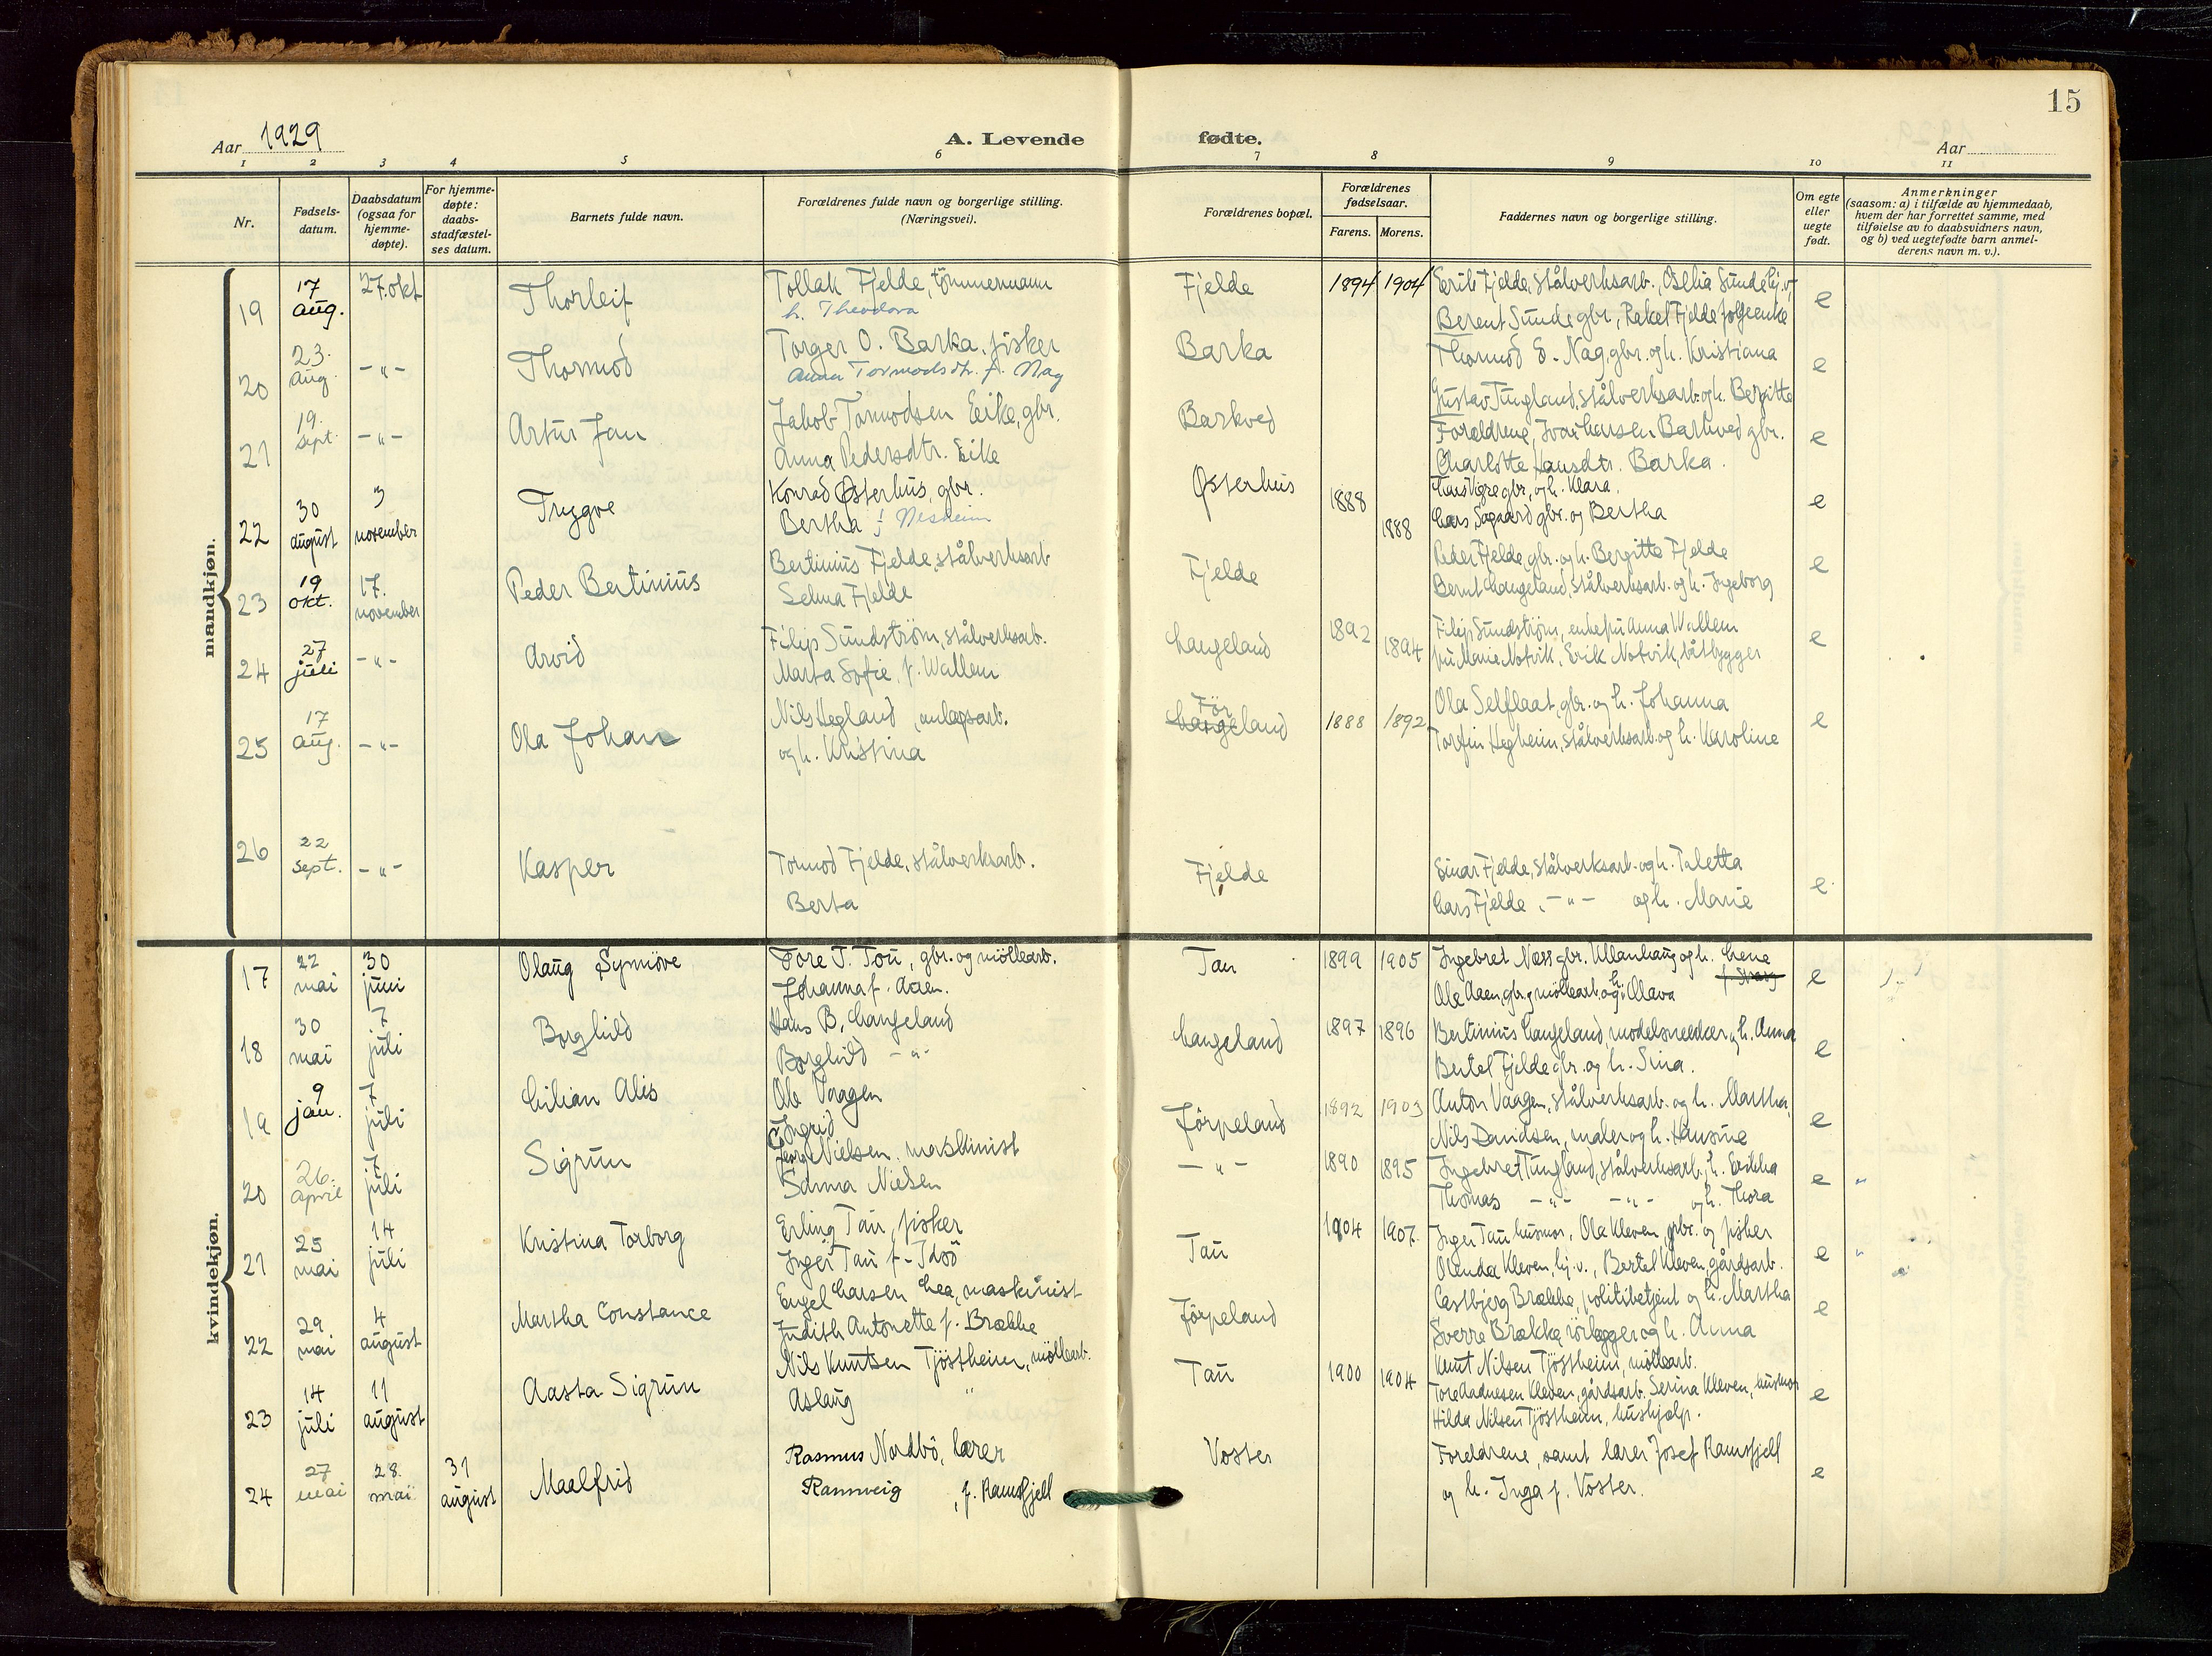 15
Aar 1929
A. Levende fødte.
Aar
1 2 3 4 5 6 7 8 9 10 11
Nr.
Fødsels-
datum.
Daabsdatum
(ogsaa for
hjemme-
døpte).
For hjemme-
døpte:
daabs-
stadfæstel-
ses datum.
Barnets fulde navn.
Forældrenes fulde navn og borgerlige stilling.
(Næringsvei).
Forældrenes bopæl.
Forældrenes
fødselsaar.
Farens. Morens.
Faddernes navn og borgerlige stilling.
Om egte
eller
uegte
født.
Anmerkninger
(saasom: a) i tilfælde av hjemmedaab,
hvem der har forrettet samme, med
tilføielse av to daabsvidners navn,
og b) ved uegtefødte barn anmel-
derens navn m. v.).
mandkjøn.
19 17 aug. 27. okt Thorleif Tollak Fjelde, tömmermann Fjelde 1894 1904 Erik Fjelde, stålverksarb., Sunde hj. v. e
h. Theodora Berent Sunde gbr., Rakel Fjelde
20 23. aug. -"- Thormod Torger O. Barka, fisker Barka Thormod E. Nag, gbr. og h. Kristiana e
Anna Tormodsdtr. f. Nag Gustav Tungland, stålverksarb. og h. Bergitte
21 19. sept. -"- Artur Jan Jakob Tormodsen Eike, gbr. Barkved Foreldrene, Ivar Larsen Barkved gbr. e
Anna Pedersdtr. Eike Charlotte Hansdtr. Barka.
22 30 august 3 november Trygve Konrad Østerhus, gbr. Østerhus 1888 gbr, og h. Klara. e
Bertha f. Nesheim 1888 Lars Sagaard gbr. og Bertha
23 19 okt. 17. november Peder Bertinius Bertinius Fjelde, stålverksarb Fjelde Peder Fjelde, gbr. og h. Bergitte Fjelde e
Selma Fjelde Bernt Langeland, stålverksarb. og h. Ingeborg
24 27 juli -"- Arvid Filip Sundström, stålverksarb. Langeland 1892 Filip Sundström, enkefru Anna Wallem e
Marta Sofie, f. Wallem 1894 fru Marie Notvik, Erik Notvik, båtbygger
25 17 aug. -"- Ola Johan Nils Hegland, anlagsarb. Langeland För 1888 1892 Ola Selflaat, gbr. og h. Johanna e
og h. Kristina Torfin Hegheim, stålverksarb. og h. Karoline
26 22 sept. -"- Kasper Tormod Fjelde, stålverksarb. Fjelde Einar Fjelde, stålverksarb. og h. Taletta e
Berta Lars Fjelde, -"- og h. Marie
kvindekjøn.
17 22 mai 30 juni Olaug Synnöve Tore T. Tou, gbr. og möllearb. Tau 1899 1905 Ingebret Næss gbr. Ullanhaug og h. Lene e
Johanna f. Aaen. Ole Aaen, gbr., möllearb. og h. Olava
18 30 mai 7 juli Borghild Hans B. Langeland Langeland 1897 1896 Bertinius Langeland, modelsnekker og h. Anna e
Borghild -"- Bertel Fjelde gbr. og h. Sina.
19 9 jan. 7 juli Lilian Alis Ole Vaagen Jörpeland 1892 1903 Anton Vaagen, stålverksarb. og h. Martha, e
Ingrid Nils Davidsen, maler og h. Hansine
20 26. april 7 juli Sigrun Georg Nielsen, maskinist -"- 1890 1895 Ingebret Tungland, stålverksarb., h. Erikka e "
Sanna Nielsen Thomas -"- -"- og h. Thora
21 25 mai 14 juli Kristina Torborg Erling Tau, fisker Tau 1904 1907. Inger Tau husmor, Ola Kleven, gbr. og fisker e "
Inger Tau f. Idsö Olenda Kleven, hj. v., Bertel Kleven, gårdsarb.
22 29 mai 4 august Martha Constance Engel Larsen Lea, maskinist Jörpeland Castbjerg Brække, politibetjent og h. Martha e
Judith Antonette f. Brække Sverre Brække, rörlegger og h. Anna
23 14 juli 11 august Aasta Sigrun Nils Knutsen Tjöstheim, möllearb. Tau 1900 1904 Knut Nilsen Tjöstheim, möllearb. e
Aslaug " Tore Aadnesen Kleven, gårdsarb. Serina Kleven, husmor
Hilda Nilsen Tjöstheim, hushjelp.
24 27 mai 28. mai 31 august Maalfrid Rasmus Nordbö, lærer Voster Foreldrene, samt lærer Josef Ramsfjell e
Rannveig, f. Ramsfjell og h. Inga f. Voster.